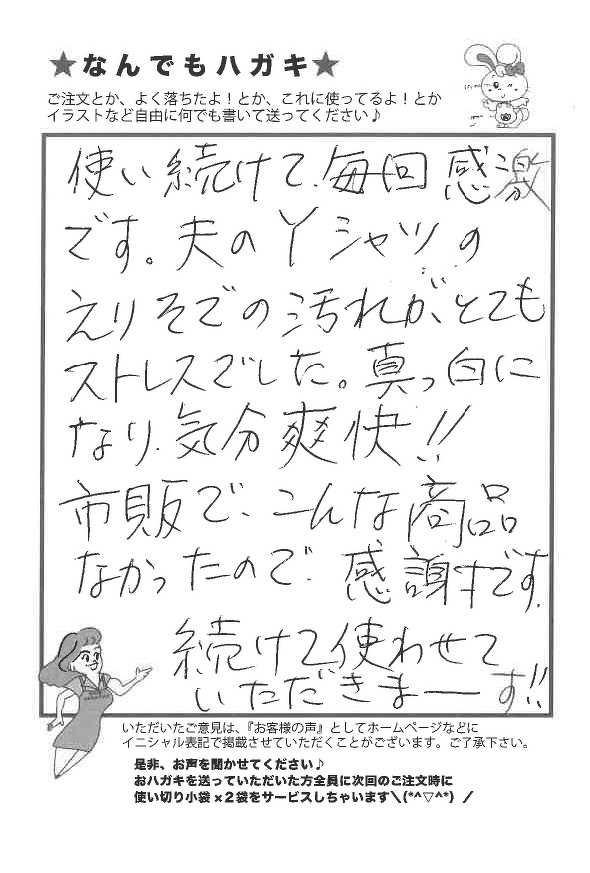 ★なんでもハガキ★
ご注文とか、よく落ちたよ！とか、これに使ってるよ！とか
イラストなど自由に何でも書いて送ってください♪
使い続けて、毎回感激
です。夫のYシャツの
えりそでの汚れが、とても
ストレスでした。真っ白に
なり、気分爽快!!
市販で、こんな商品
なかったので、感謝です。
続けて使わせて
いただきまーす!!
いただいたご意見は、『お客様の声』としてホームページなどに
イニシャル表記で掲載させていただくことがございます。ご了承下さい。
是非、お声を聞かせてください♪
おハガキを送っていただいた方全員に次回のご注文時に
使い切り小袋×2袋をサービスしちゃいます＼(*^▽^*)／